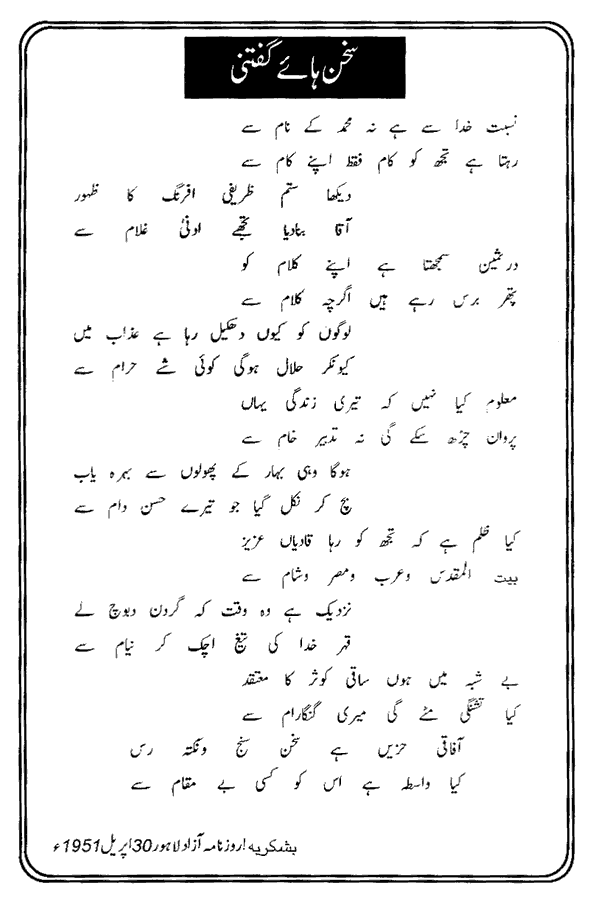 سخن ہائے گفتنی
نسبت خدا سے ہے نہ محمد کے نام سے
رہتا ہے تجھ کو کام فقط اپنے کام سے
دیکھا ستم ظریفی افرنگ کا ظہور
آقا بنادیا تجھے ادنیٰ غلام سے
درثمین سمجھتا ہے اپنے کلام کو
پتھر برس رہے ہیں اگرچہ کلام سے
لوگوں کو کیوں دھکیل رہا ہے عذاب میں
کیونکر حلال ہوگی کوئی شے حرام سے
معلوم کیا نہیں کہ تیری زندگی یہاں
پروان چڑھ سکے گی نہ تدبیر خام سے
ہوگا وہی بہار کے پھولوں سے بہرہ یاب
بچ کر نکل گیا جو تیرے حسن دام سے
کیا ظلم ہے کہ تجھ کو رہا قادیاں عزیز
بیت المقدس وعرب ومصر وشام سے
نزدیک ہے وہ وقت کہ گردن دبوچ لے
قہر خدا کی تیغ اچک کر نیام سے
بے شبہ میں ہوں ساقی کوثر کا معتقد
کیا تشنگی مٹے گی میری گنگارام سے
آفاقی حزیں ہے سخن سنج ونکتہ رس
کیا واسطہ ہے اس کو کسی بے مقام سے
بشکریہ! روزنامہ آزاد لاہور 30 اپریل 1951ء